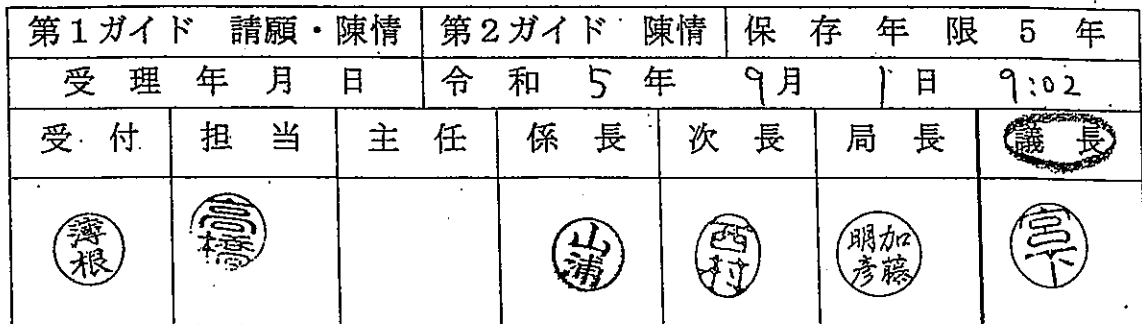 第1ガイド 請願・陳情 第2ガイド 陳情 保存年限 5年
受理年月日 令和5年 9月 1日 9:02
受付 担当 主任 係長 次長 局長 議長
薄根 高橋 山浦 西村 加藤明彦 宮下